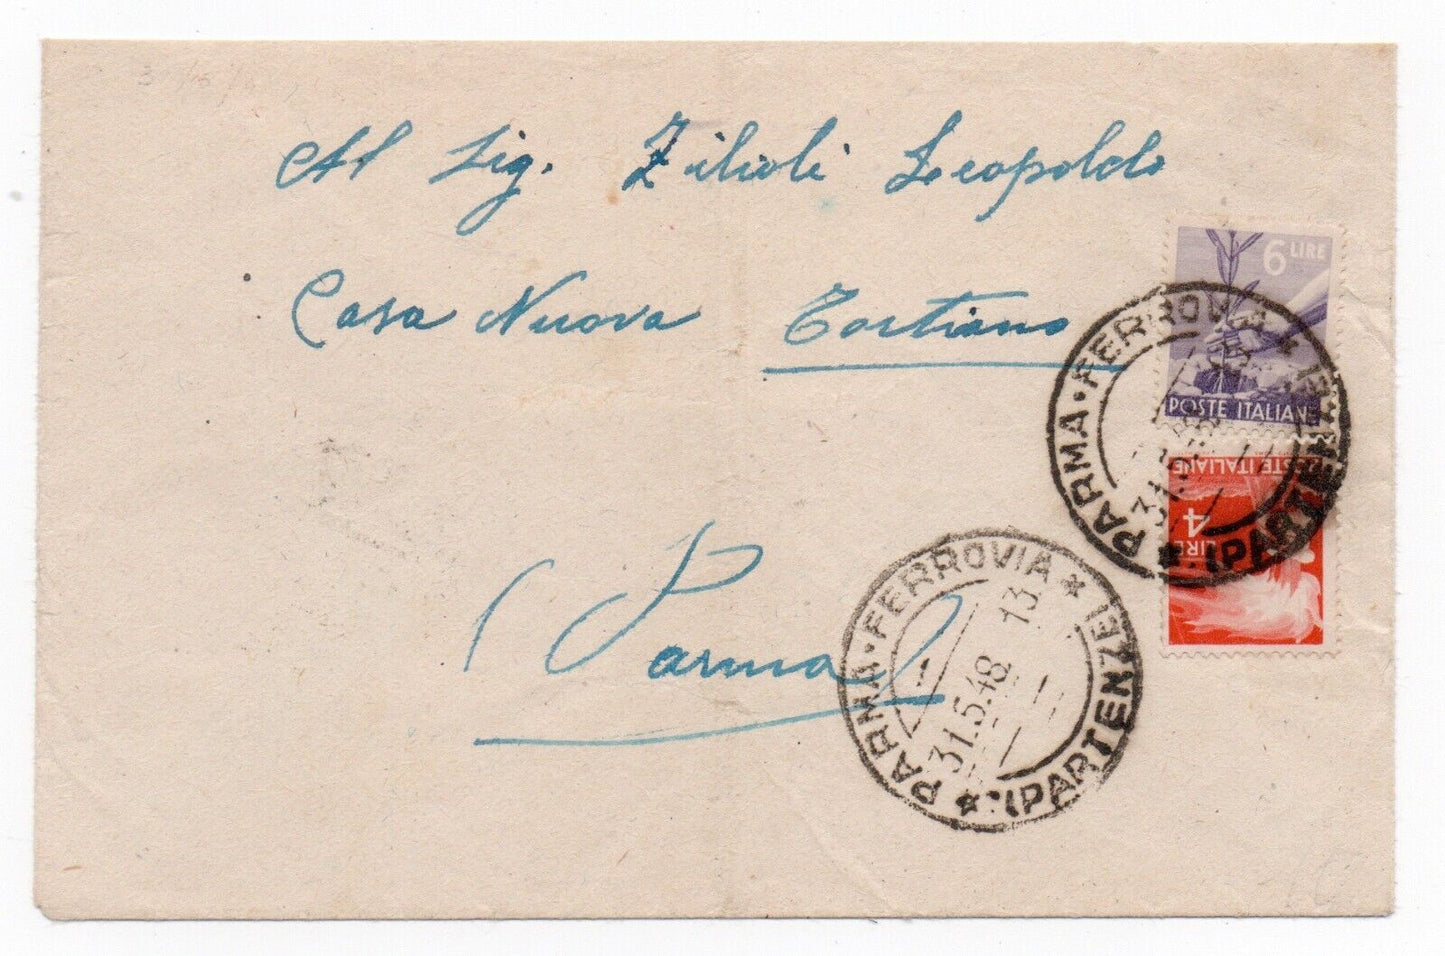 Al Sig. Zilioli Leopoldo
Casa Nuova Tortiano
Parma
6 LIRE
POSTE ITALIANE
PARMA·FERROVIA * (PARTENZE) *
31.5.48
POSTE ITALIANE
4
LIRE
PARMA·FERROVIA * (PARTENZE) *
31.5.48. 13